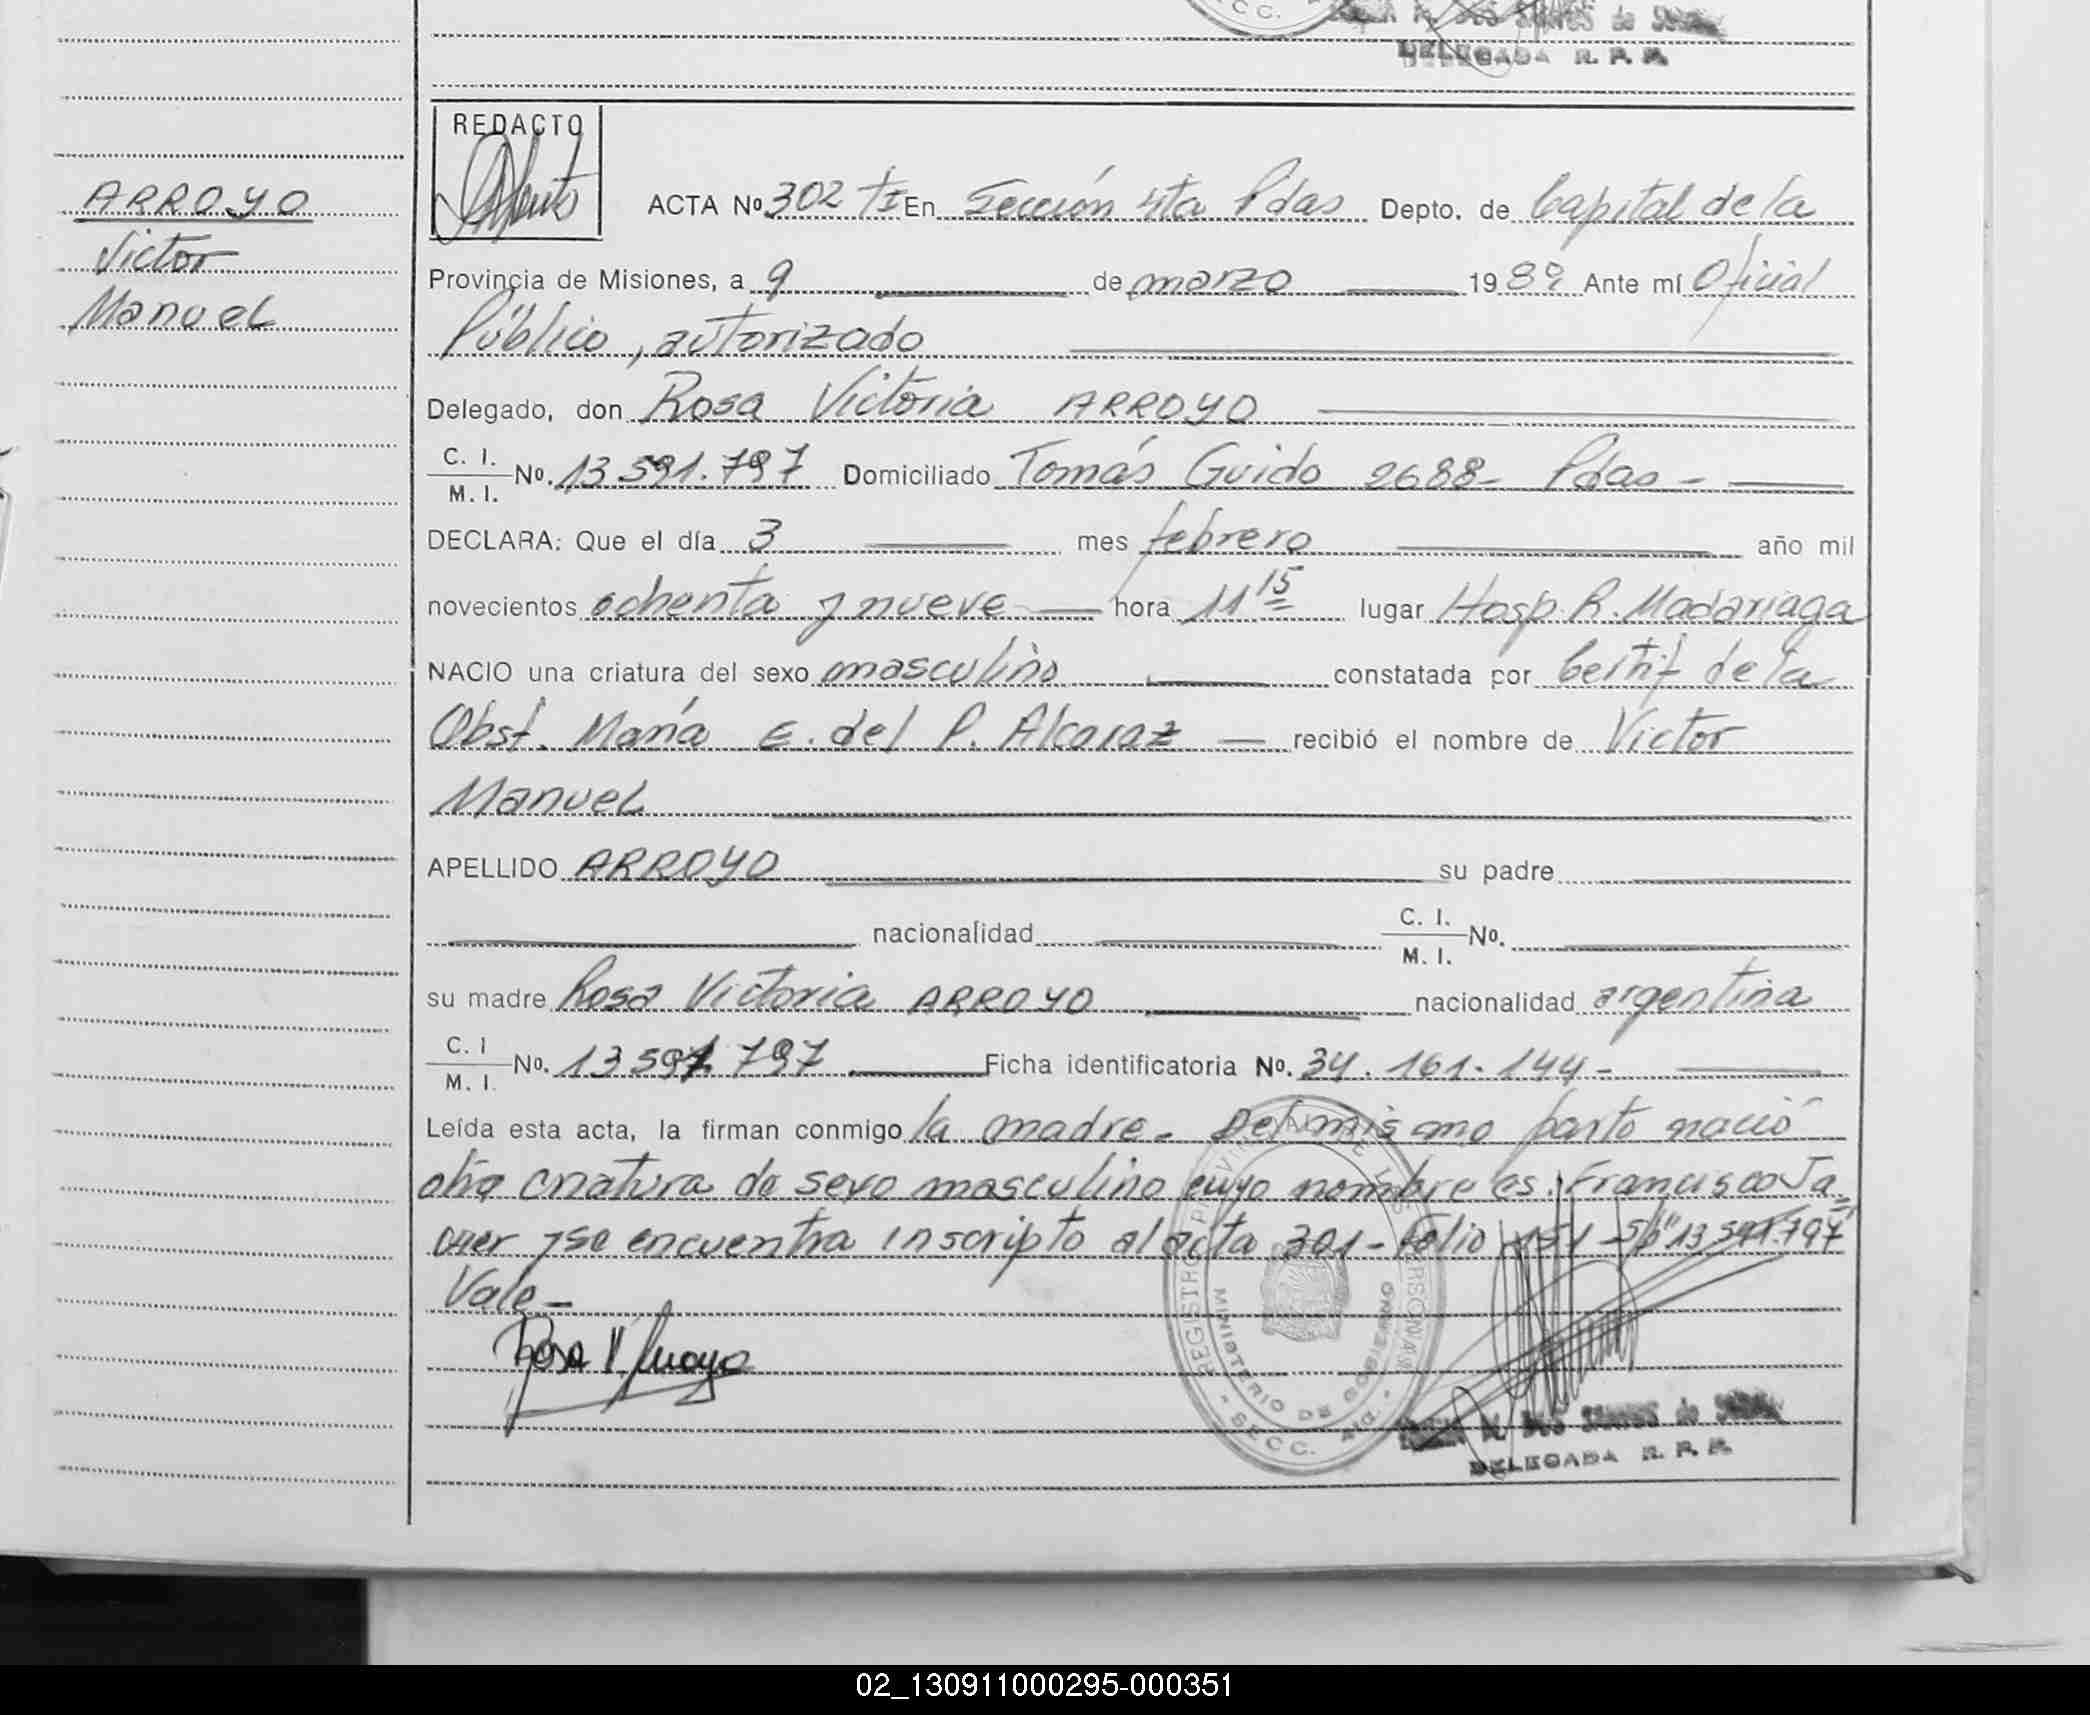 DELEGADA R. P. P.
REDACTO
ARROYO
Victor
Manuel
ACTA No 302 tI En Sección 4ta Pdas Depto. de Capital de la
Provincia de Misiones, a 9 de marzo 1989 Ante mí Oficial
Público, autorizado
Delegado, don Rosa Victoria ARROYO
C. I.
M. I. No. 13.591.797 Domiciliado Tomás Guido 2688- Pdas-
DECLARA: Que el día 3 mes febrero año mil
novecientos ochenta y nueve hora 11 15 lugar Hosp. R. Madariaga
NACIO una criatura del sexo masculino constatada por Certif de la
Obst. María E. del P. Alcaraz recibió el nombre de Victor
Manuel
APELLIDO ARROYO su padre
nacionalidad C. I.
M. I. No.
su madre Rosa Victoria ARROYO nacionalidad argentina
C. I
M. I. No. 13 591 797 Ficha identificatoria No. 34.161.144-
Leída esta acta, la firman conmigo la madre. Del mismo parto nació
otra criatura de sexo masculino cuyo nombre es: Francisco Ja=
vier y se encuentra inscripto al acta 301- Folio 151 - S/b "13.591.797"
Vale-
Rosa V. Arroyo
REGISTRO PROVINCIAL DE LAS PERSONAS
MINISTERIO DE GOBIERNO
- SECC. 4ta. -
DOS SANTOS de
DELEGADA R. P. P.
02_130911000295-000351